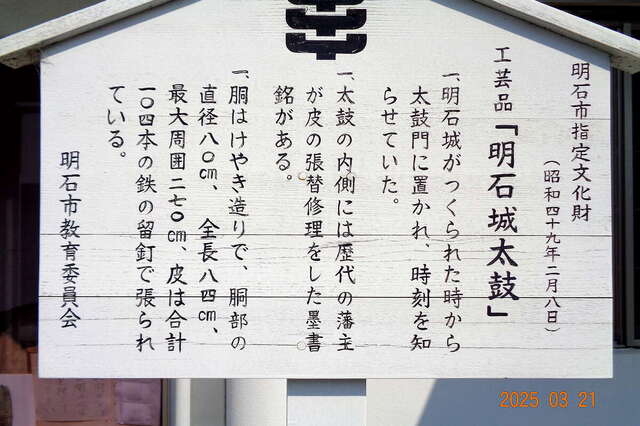 明石市指定文化財
（昭和四十九年二月八日）
工芸品「明石城太鼓」
一、明石城がつくられた時から
太鼓門に置かれ、時刻を知
らせていた。
一、太鼓の内側には歴代の藩主
が皮の張替修理をした墨書
銘がある。
一、胴はけやき造りで、胴部の
直径八〇cm、全長八四cm、
最大周囲二七〇cm、皮は合計
一〇四本の鉄の留釘で張られ
ている。
明石市教育委員会
2025 03 21